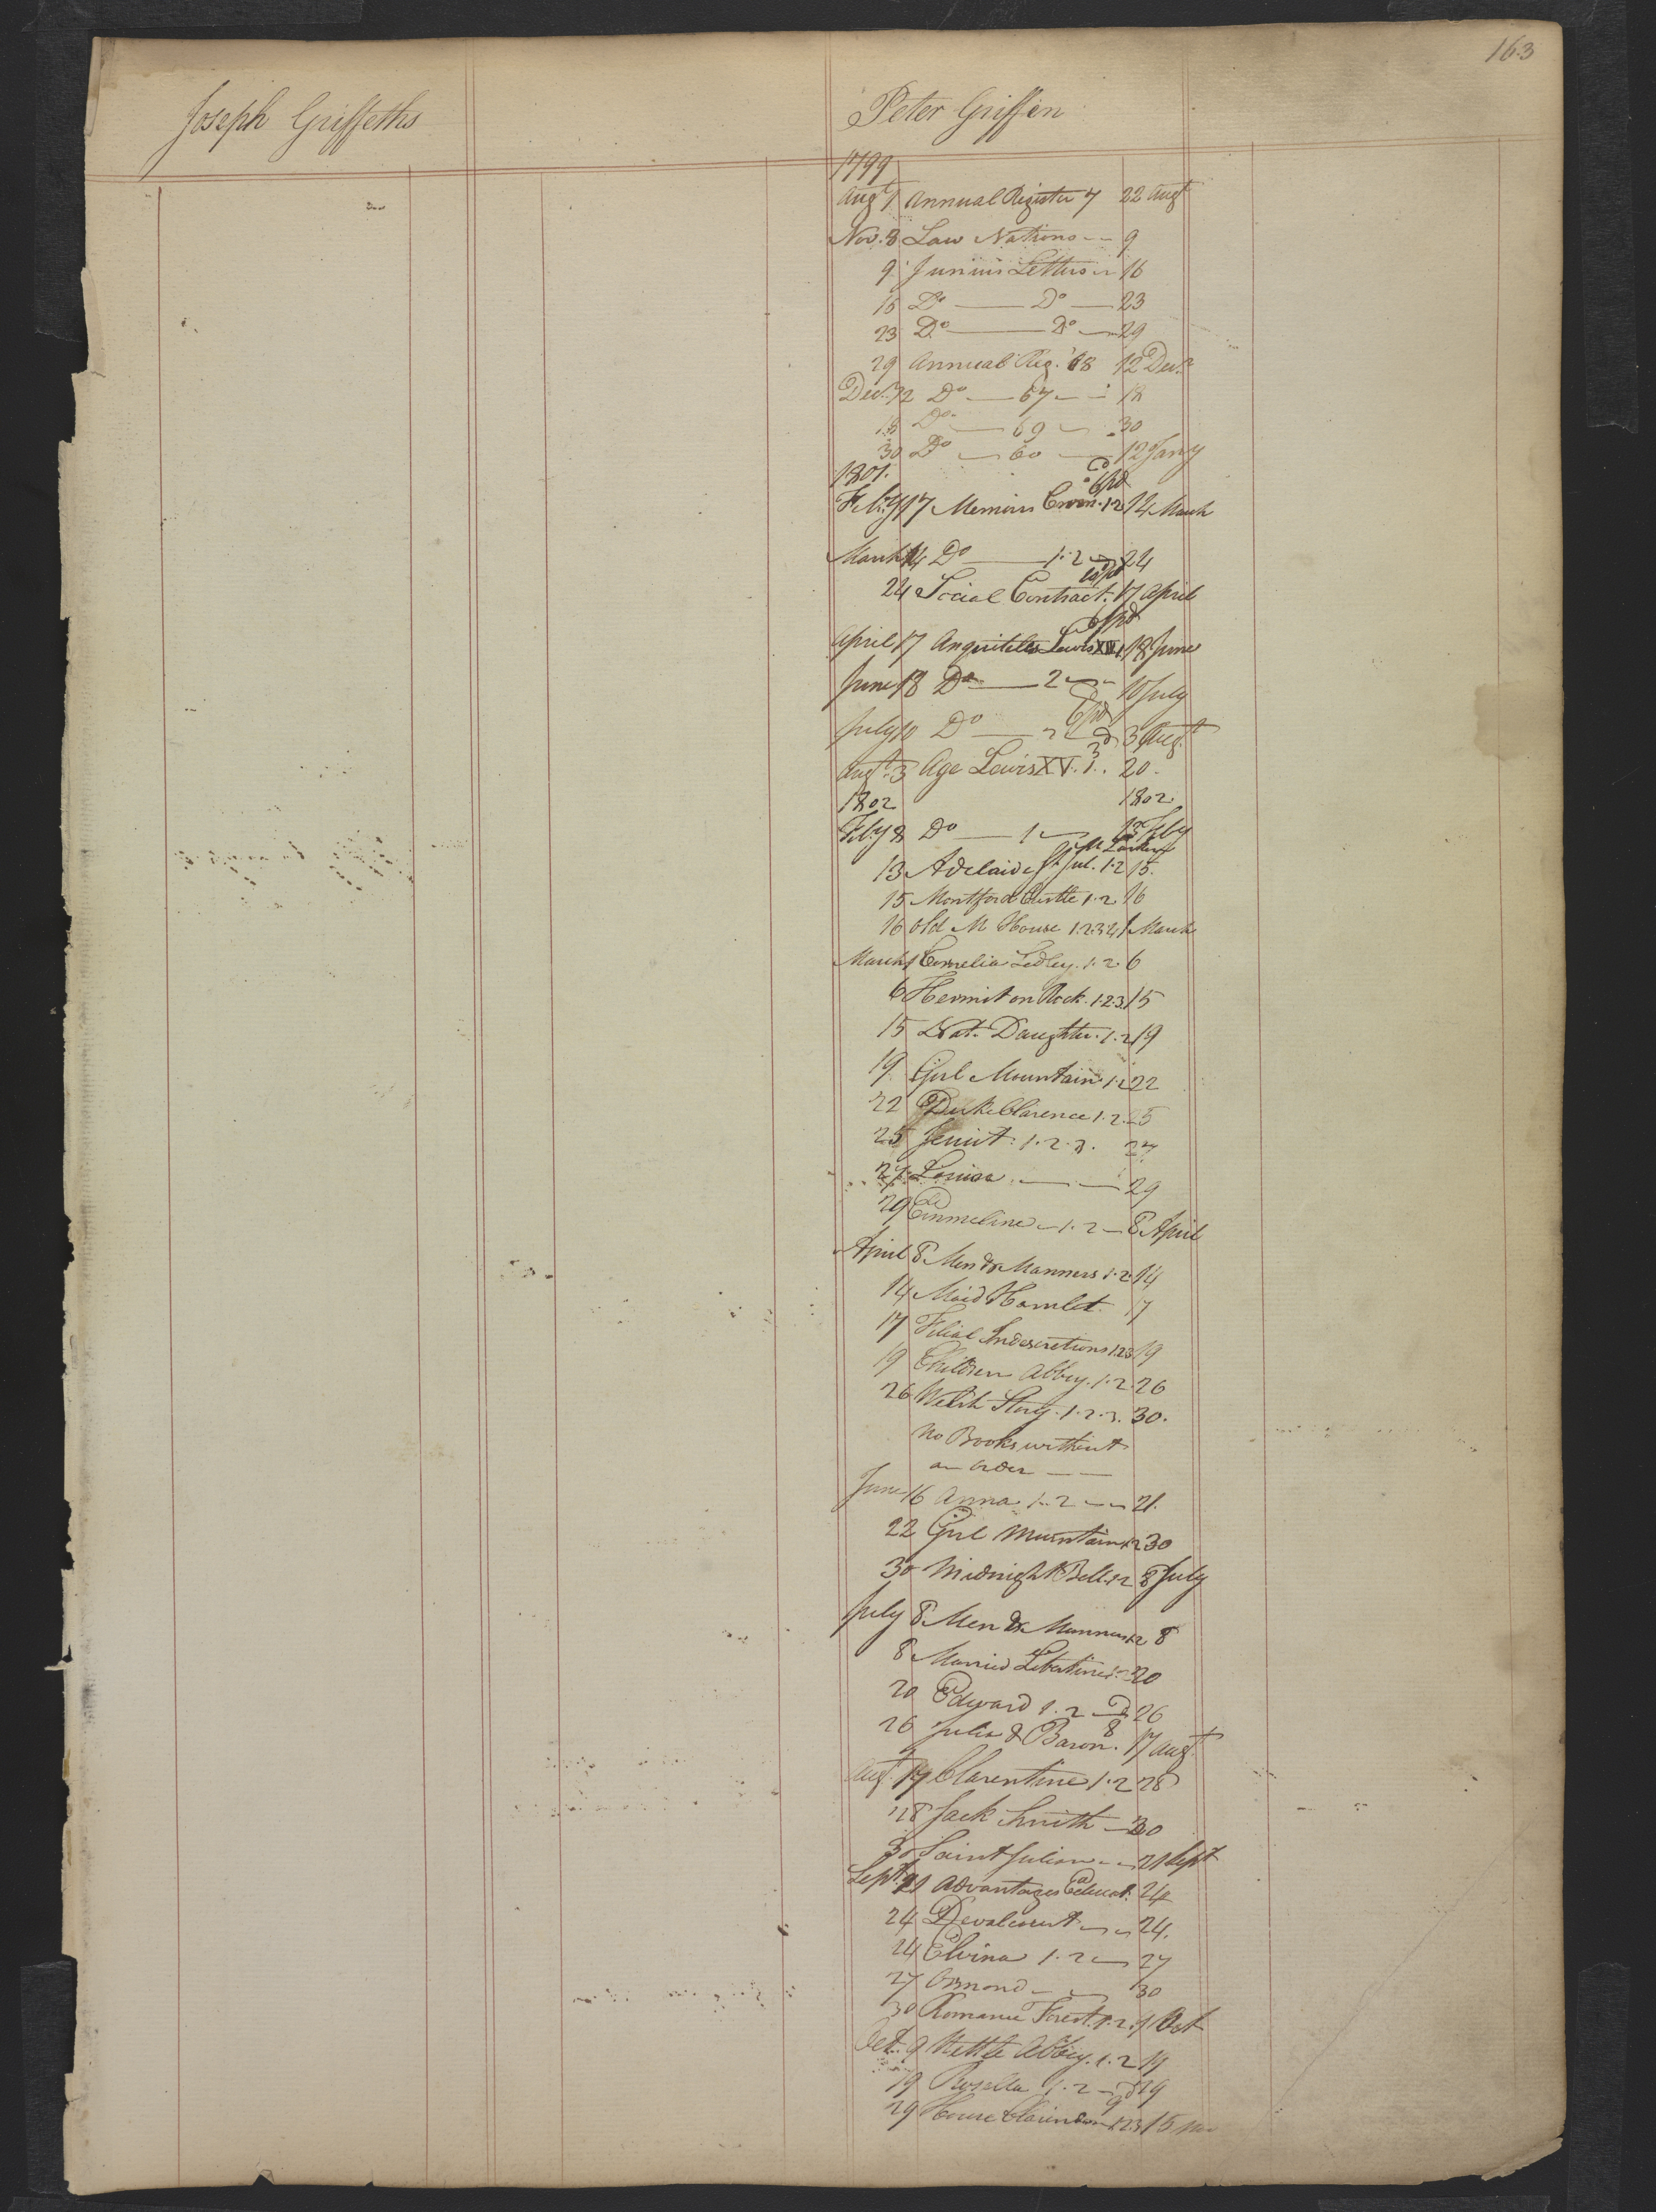 163
Joseph Griffeths
Peter Griffin
1799
Augt 1 Annual Register 7 22 Augt
Nov. 8 Law Nations 9
9 Junius Letters 16
16 Do — Do — 23
23 Do — Do — 29
29 Annual Reg. 68 12 Decr
Decr 12 Do — 67 — 18
18 Do — 69 — 30
30 Do — 60 — 12 Jany
1801.
6/pd
Feby 17 Memoirs Crom. 1.2 14 March
March 14 Do — 1.2 24
24 Social Contract. 17 April
6/pd
April 17 Anquitelles Lewis XIV 1. 18 June
June 18 Do — 2 — 10 July
6/pd
July 10 Do — 3 Augt
3d
Augt 3 Age Lewis XV. 1. 20.
1802 1802.
Feby 8 Do — 1 — 13 Feby
13 Adelaide St Jul. 1.2 15.
15 Montford Castle 1.2 16
16 Old M House 1.2.3.4 1 March
March 1 Cornelia Sedley. 1.2 6
6 Hermit on Rock. 1.2.3 15
15 Nat. Daughter. 1.2 19
19 Girl Mountain. 1.2 22
22 Duke Clarence 1.2. 25
25 Jesuit. 1.2.3. 27
27 Louisa — 29
29 Emmeline — 1.2 — 8 April
April 8 Men & Manners 1.2 14
14 Maid Hamlet. 17
17 Filial Indescretions 1.2.3 19
19 Children Abbey. 1.2. 26
26 Welsh Story. 1.2.3. 30.
No Books without
an order —
June 16 Anna 1.2 — 21.
22 Girl Mountain 1.2 30
30 Midnight Bell 1.2 8 July
July 8 Men & Manners 1.2 8
8 Married Libertine 1.2 20
20 Edward 1.2 — 26
26 Julia & Baron. 17 Augt
Augt 17 Clarentine 1.2 28
28 Jack Smith — 30
30 Saint Julian — 21 Sept
Sept. 21 Advantages Educat. 24
24 Devalcourt — 24.
24 Elvina 1.2 — 27
27 Ormond — 30
30 Romance Forest. 1.2. 9 Oct
Oct. 9 Nettle Abbey. 1.2 19
19 Rosella 1.2 — 29
29 House Clarendon 1.2.3 15 Nov